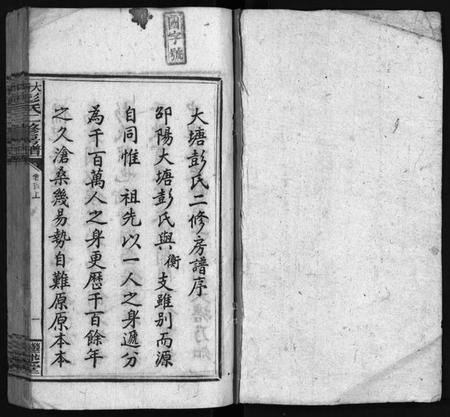 國字號
大塘彭氏二修房譜序
邵陽大塘彭氏與衡支雖别而源
自同惟 祖先以一人之身遞分
為千百萬人之身更歴千百餘年
之久滄桑幾易勢自難原原本本
大塘彭氏二修房譜
卷首上
一